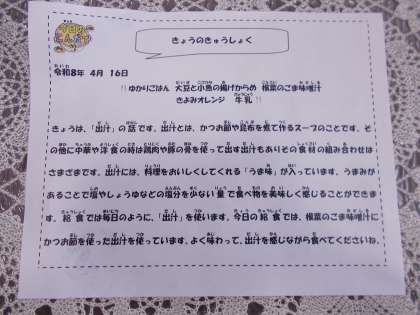 きょうのきゅうしょく
令和8年 4月 16日
!! ゆかりごはん 大豆と小魚の揚げからめ 根菜のごま味噌汁
きよみオレンジ 牛乳 !!
きょうは、「出汁」の話です。出汁とは、かつお節や昆布を煮て作るスープのことです。そ
の他に中華や洋食の時は鶏肉や豚の骨を使って出す出汁もありその食材の組み合わせは
さまざまです。出汁には、料理をおいしくしてくれる「うま味」が入っています。うまみが
あることで塩やしょうゆなどの塩分を少ない量で食べ物を美味しく感じることができま
す。給食では毎日のように、「出汁」を使います。今日の給食では、根菜のごま味噌汁に
かつお節を使った出汁を使っています。よく味わって、出汁を感じながら食べてくださいね。